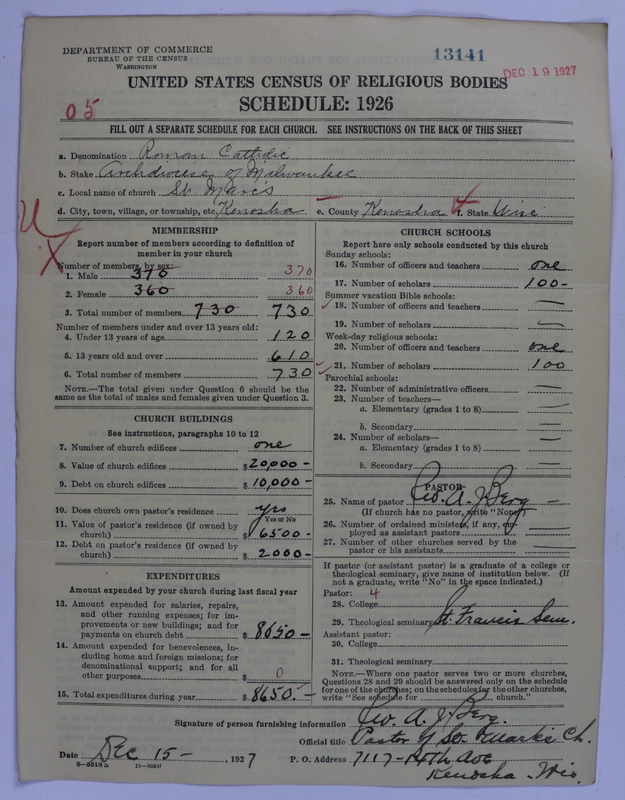 DEPARTMENT OF COMMERCE
BUREAU OF THE CENSUS
WASHINGTON
13141
DEC 19 1927
UNITED STATES CENSUS OF RELIGIOUS BODIES
SCHEDULE: 1926
05
FILL OUT A SEPARATE SCHEDULE FOR EACH CHURCH. SEE INSTRUCTIONS ON THE BACK OF THIS SHEET
a. Denomination Roman Catholic
b. Stake Archdiocese of Milwaukee
c. Local name of church St. Marcs
d. City, town, village, or township, etc. Kenosha e. County Kenosha f. State Wisc
MEMBERSHIP
Report number of members according to definition of
member in your church
Number of members, by sex:
1. Male 370 370
2. Female 360 360
3. Total number of members 730 730
Number of members under and over 13 years old:
4. Under 13 years of age 120
5. 13 years old and over 610
6. Total number of members 730
NOTE.—The total given under Question 6 should be the
same as the total of males and females given under Question 3.
CHURCH BUILDINGS
See instructions, paragraphs 10 to 12
7. Number of church edifices one
8. Value of church edifices $20,000-
9. Debt on church edifices $10,000-
10. Does church own pastor's residence yes
Yes or No
11. Value of pastor's residence (if owned by
church) $6500-
12. Debt on pastor's residence (if owned by
church) $2000-
EXPENDITURES
Amount expended by your church during last fiscal year
13. Amount expended for salaries, repairs,
and other running expenses; for im-
provements or new buildings; and for
payments on church debt $8650-
14. Amount expended for benevolences, in-
cluding home and foreign missions; for
denominational support; and for all
other purposes $0
15. Total expenditures during year $8650.-
CHURCH SCHOOLS
Report here only schools conducted by this church
Sunday schools:
16. Number of officers and teachers one
17. Number of scholars 100-
Summer vacation Bible schools:
18. Number of officers and teachers —
19. Number of scholars —
Week-day religious schools:
20. Number of officers and teachers one
21. Number of scholars 100
Parochial schools:
22. Number of administrative officers —
23. Number of teachers—
a. Elementary (grades 1 to 8) —
b. Secondary —
24. Number of scholars—
a. Elementary (grades 1 to 8) —
b. Secondary —
PASTOR
25. Name of pastor Geo. A. J. Berg -
(If church has no pastor, write "None")
26. Number of ordained ministers, if any, em-
ployed as assistant pastors —
27. Number of other churches served by the
pastor or his assistants —
If pastor (or assistant pastor) is a graduate of a college or
theological seminary, give name of institution below. (If
not a graduate, write "No" in the space indicated.)
Pastor: 4
28. College
29. Theological seminary St. Francis Sem.
Assistant pastor:
30. College
31. Theological seminary
NOTE.—Where one pastor serves two or more churches,
Questions 28 and 29 should be answered only on the schedule
for one of the churches; on the schedules for the other churches,
write "See schedule for church."
Signature of person furnishing information Geo. A. J. Berg.
Official title Pastor of St. Marks Ch.
Date Dec 15- , 1927 P. O. Address 7117-14th Ave
Kenosha Wis.